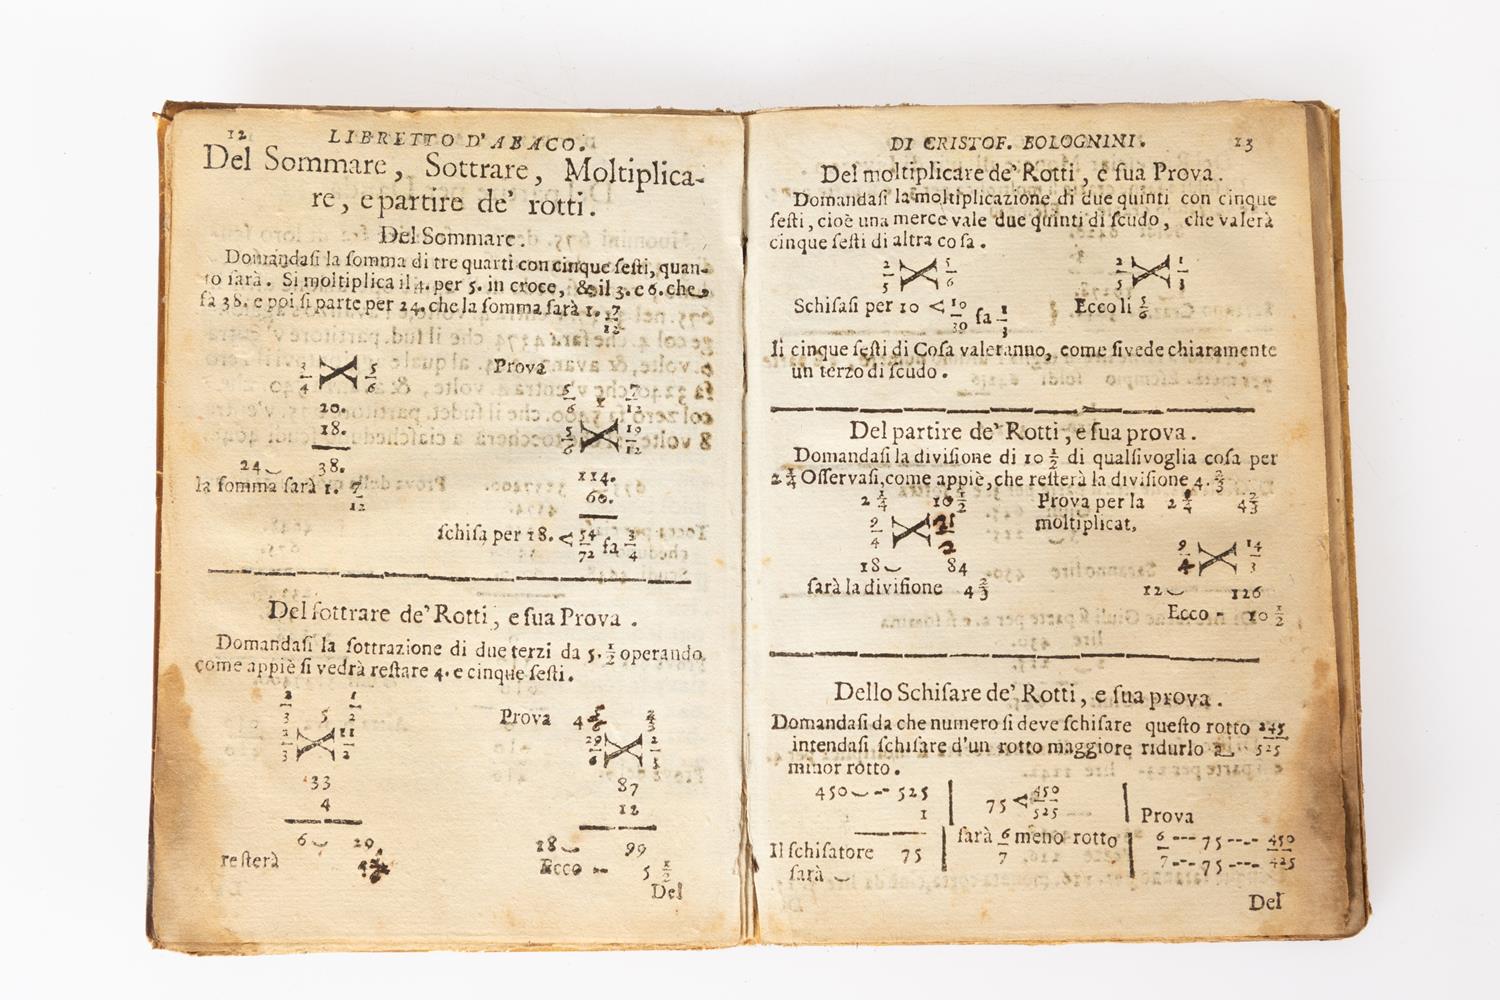 12 LIBRETTO D'ABACO.
Del Sommare, Sottrare, Moltiplica-
re, e partire de' rotti.
Del Sommare.
Domandaſi la ſomma di tre quarti con cinque ſeſti, quan-
to ſarà. Si moltiplica il 4. per 5. in croce, & il 3. e 6. che
fa 38. e poi ſi parte per 24. che la ſomma ſarà 1. 7/12
3/4 5/6
20.
18.
24 38.
la ſomma ſarà 1. 7/12
Prova
5/6 1 7/12
5/6 19/12
114.
60.
ſchiſa per 18. < 54/72 fa 3/4
Del ſottrare de' Rotti, e ſua Prova.
Domandaſi la ſottrazione di due terzi da 5. 1/2 operando
come appiè ſi vedrà reſtare 4. e cinque ſeſti.
2/3 5 1/2
2/3 11/2
33
4
6 29
reſterà
Prova 4 5/6 2/3
29/6 2/3
87
12
18 99
Ecco 5 1/2
Del
DI CRISTOF. BOLOGNINI. 13
Del moltiplicare de' Rotti, e ſua Prova.
Domandaſi la moltiplicazione di due quinti con cinque
ſeſti, cioè una merce vale due quinti di ſcudo, che valerà
cinque ſeſti di altra coſa.
2/5 5/6
2/5 1/3
Schiſaſi per 10 < 10/30 fa 1/3
Ecco li 5/6
Ii cinque ſeſti di Coſa valeranno, come ſi vede chiaramente
un terzo di ſcudo.
Del partire de' Rotti, e ſua prova.
Domandaſi la diviſione di 10 1/2 di qualſivoglia coſa per
2 1/4 Oſſervaſi, come appiè, che reſterà la diviſione 4. 2/3
2 1/4 10 1/2
9/4 21/2
18 84
ſarà la diviſione 4 2/3
Prova per la 2 1/4 4 2/3
moltiplicat,
9/4 14/3
12 126
Ecco - 10 1/2
Dello Schiſare de' Rotti, e ſua prova.
Domandaſi da che numero ſi deve ſchiſare queſto rotto 245/525
intendaſi ſchiſare d'un rotto maggiore ridurlo a
minor rotto.
450 -- 525
1
Il ſchiſatore 75
ſarà
75 < 450/525
ſarà 6/7 meno rotto
Prova
6 --- 75 --- 450
7 --- 75 --- 425
Del